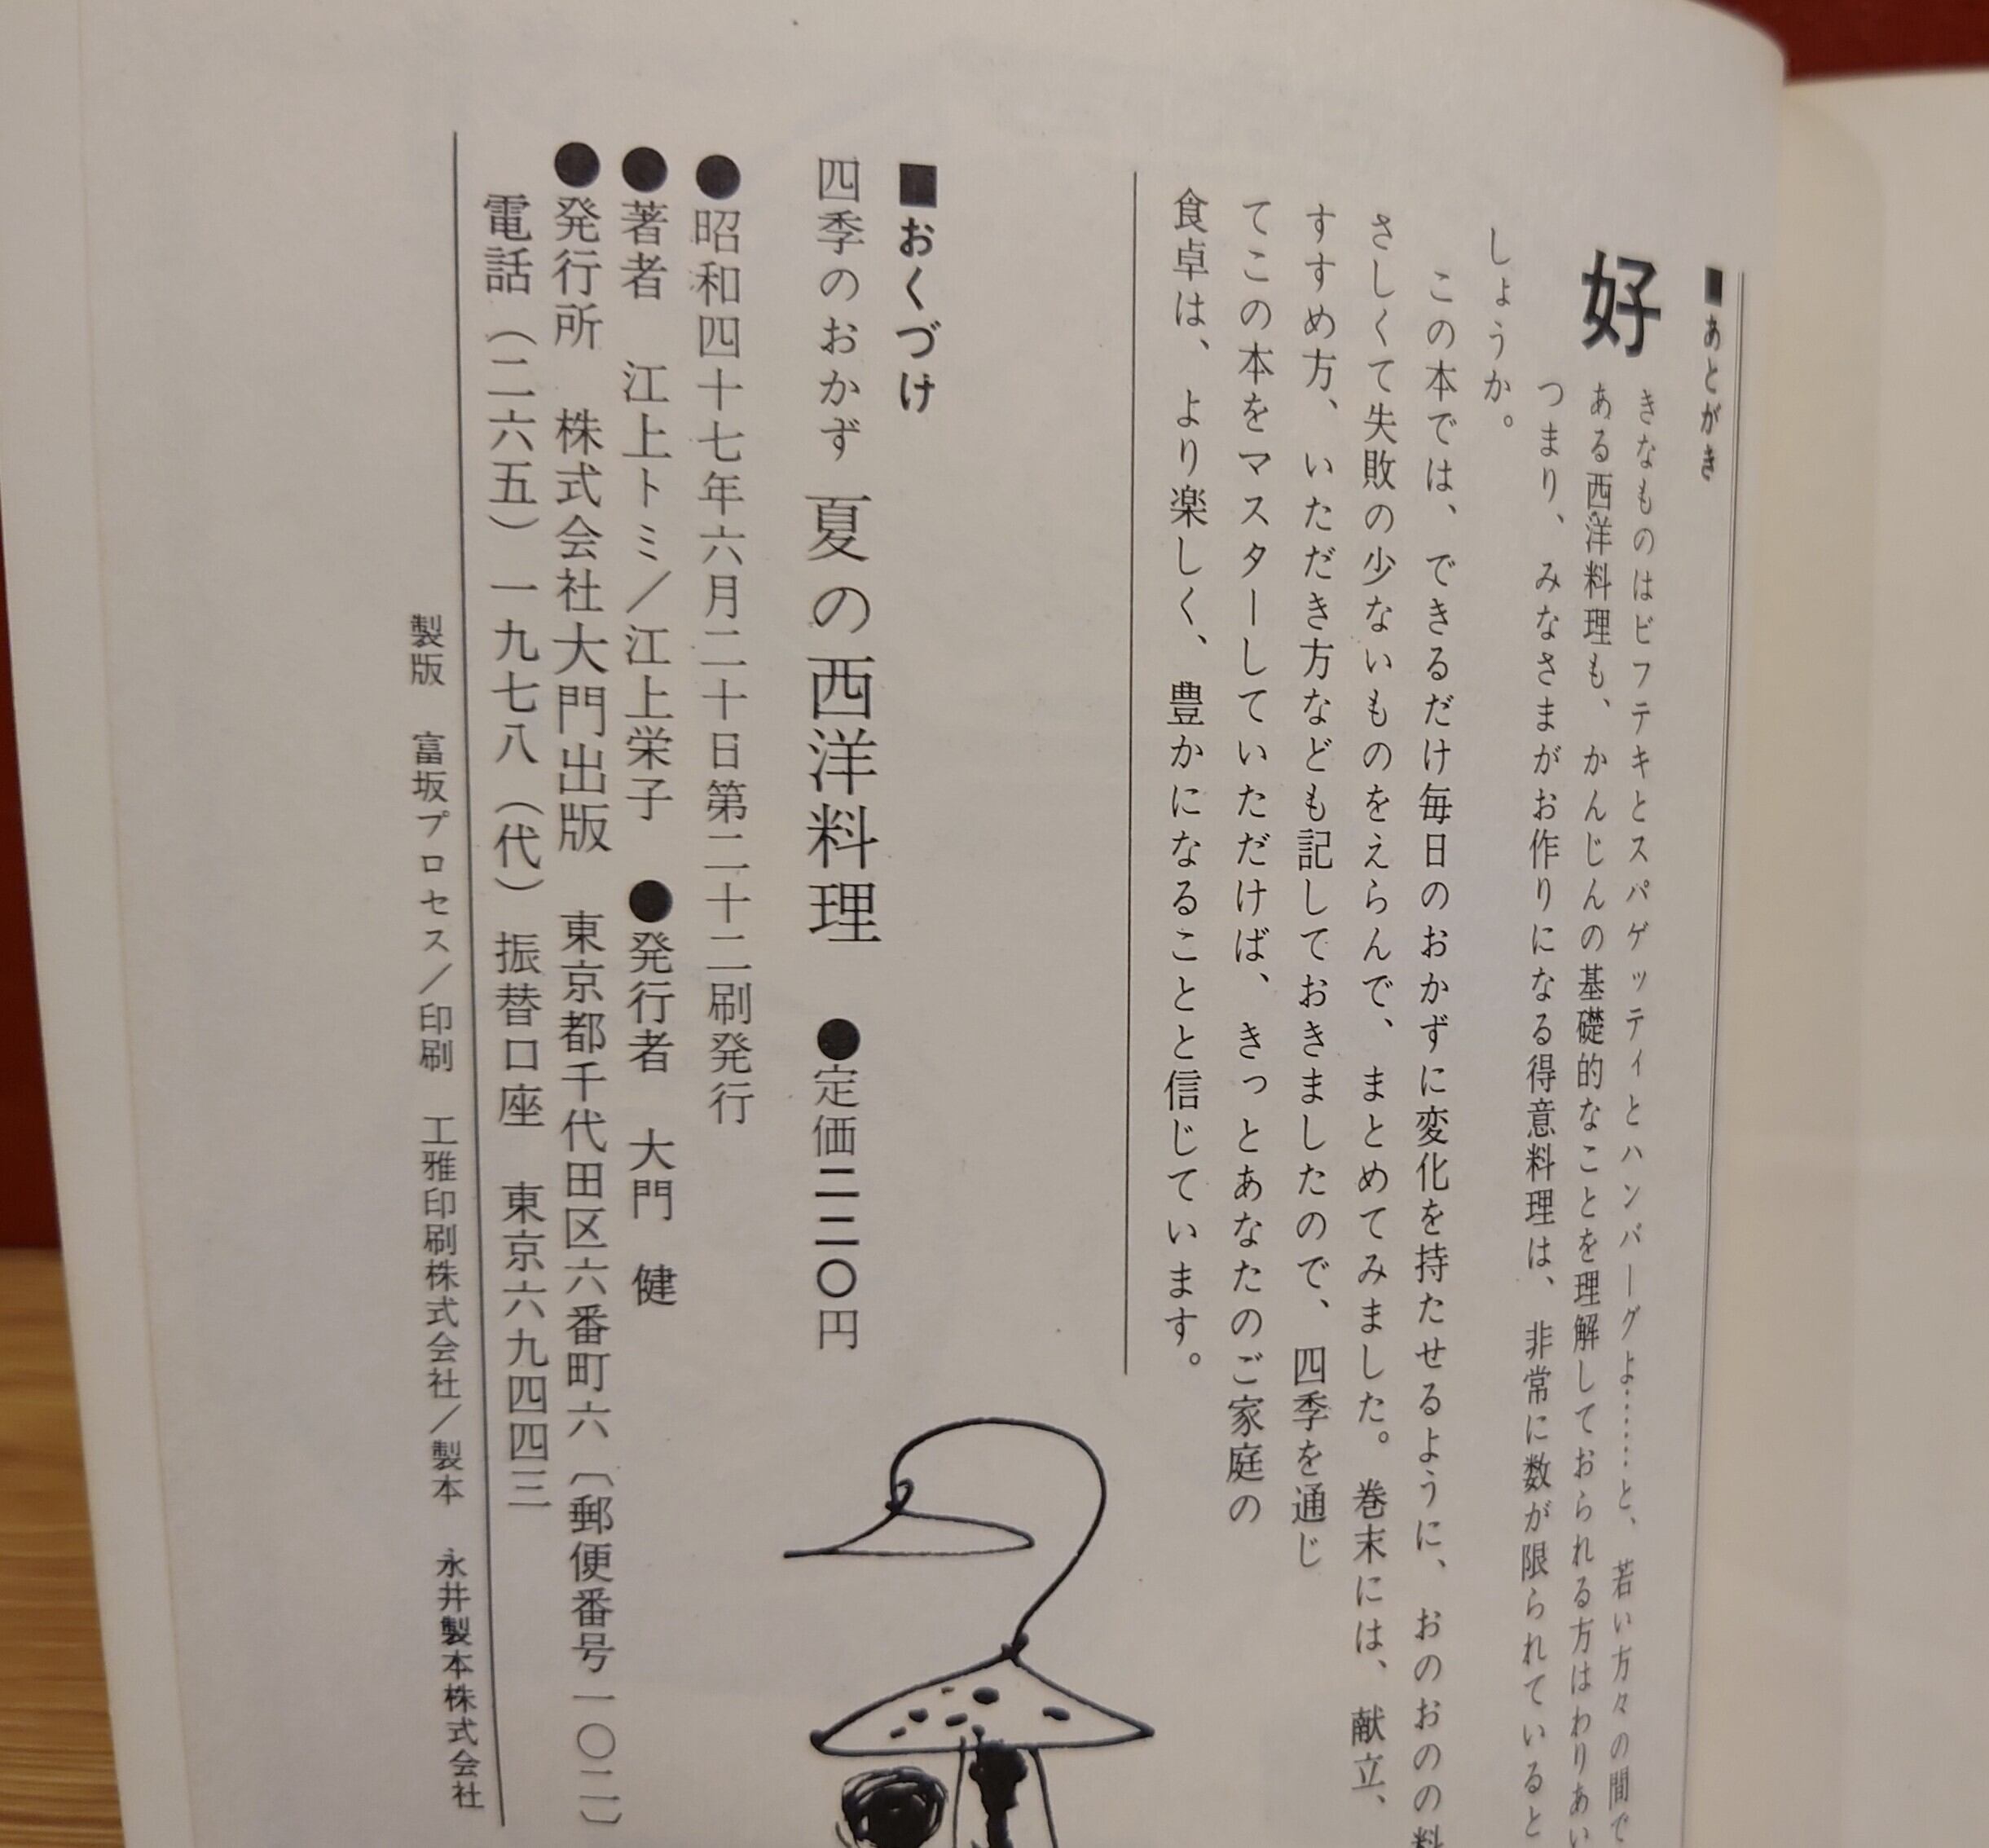 ■あとがき
好きなものはビフテキとスパゲッティとハンバーグよ……と、若い方々の間で
ある西洋料理も、かんじんの基礎的なことを理解しておられる方はわりあい
つまり、みなさまがお作りになる得意料理は、非常に数が限られていると
しょうか。
この本では、できるだけ毎日のおかずに変化を持たせるように、おのおのの料
さしくて失敗の少ないものをえらんで、まとめてみました。巻末には、献立、
すすめ方、いただき方なども記しておきましたので、四季を通じ
てこの本をマスターしていただけば、きっとあなたのご家庭の
食卓は、より楽しく、豊かになることと信じています。
■おくづけ
四季のおかず 夏の西洋料理 ●定価二二〇円
●昭和四十七年六月二十日第二十二刷発行
●著者 江上トミ／江上栄子 ●発行者 大門 健
●発行所 株式会社大門出版 東京都千代田区六番町六〔郵便番号一〇二〕
電話（二六五）一九七八（代） 振替口座 東京六九四四三
製版 富坂プロセス／印刷 工雅印刷株式会社／製本 永井製本株式会社